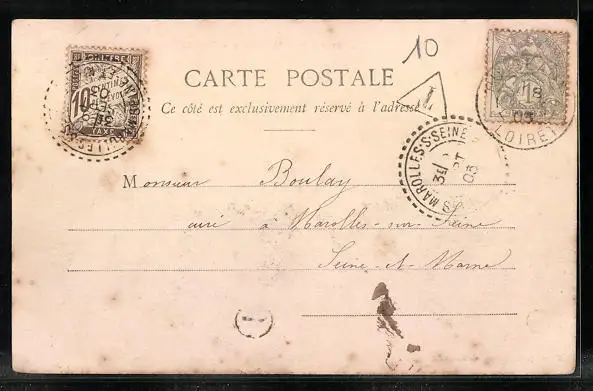 10
CARTE POSTALE
Ce côté est exclusivement réservé à l'adresse
T
10
TAXE
18
03
LOIRET
MAROLLES-S-SEINE
03
Monsieur Boulay
curé à Marolles-sur-Seine
Seine-et-Marne